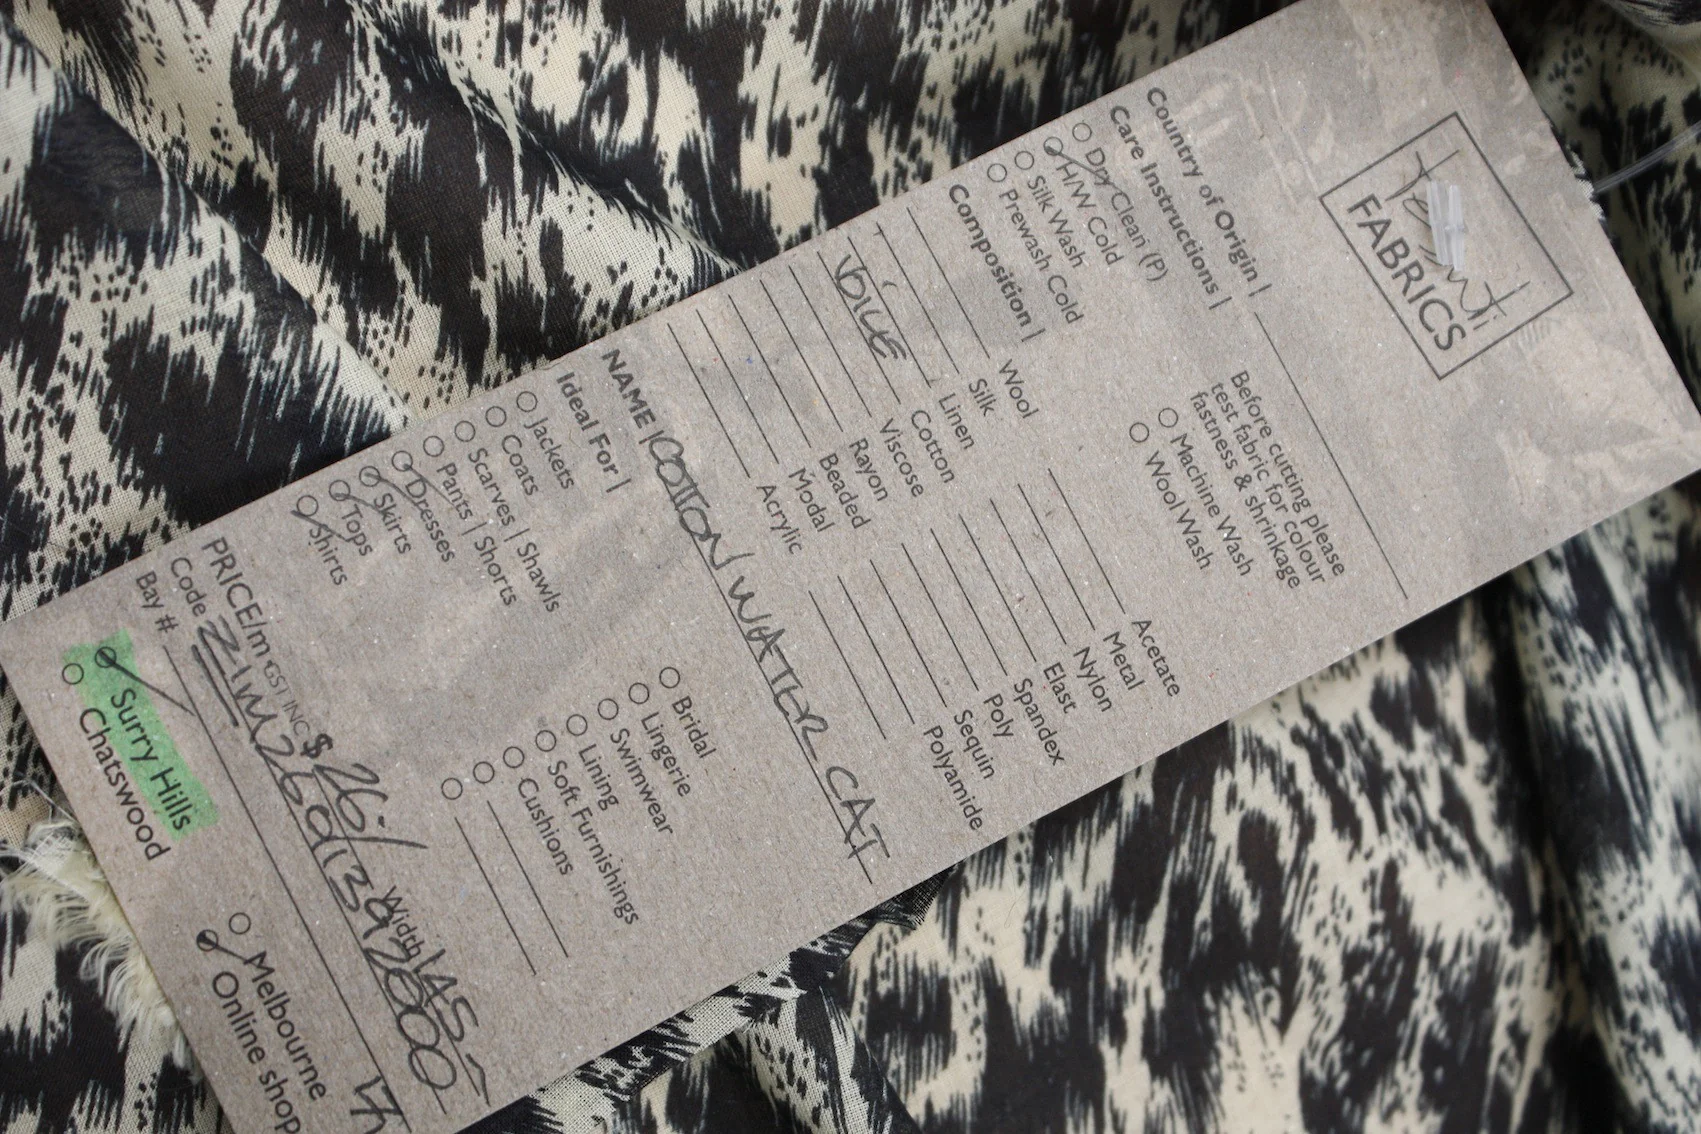 Tessuti
FABRICS
Country of Origin |
Care Instructions |
Before cutting please
test fabric for colour
fastness & shrinkage
Dry Clean (P)
H/W Cold
Silk Wash
Prewash Cold
Machine Wash
Wool Wash
Composition |
Wool
Silk
Linen
VOILE Cotton
Viscose
Rayon
Beaded
Modal
Acrylic
Acetate
Metal
Nylon
Elast
Spandex
Poly
Sequin
Polyamide
NAME | COTTON/WATER CAT
Ideal For |
Jackets
Coats
Scarves | Shawls
Pants | Shorts
Dresses
Skirts
Tops
Shirts
Bridal
Lingerie
Swimwear
Lining
Soft Furnishings
Cushions
PRICE/m GST INC $ 26./ Width | 145
Code
Bay # 17
Surry Hills
Chatswood
Melbourne
Online shop